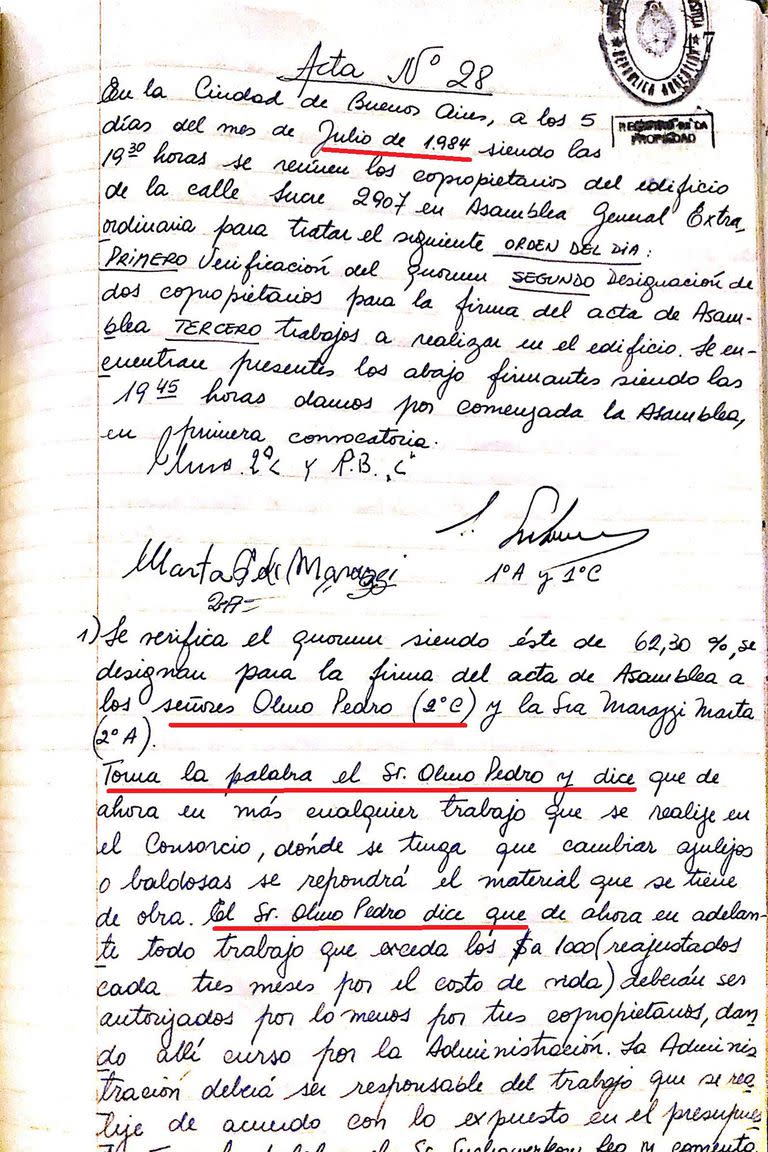 REPUBLICA ARGENTINA
47
REGISTRO DE LA
PROPIEDAD
Acta Nº 28
En la Ciudad de Buenos Aires, a los 5
días del mes de Julio de 1.984 siendo las
19³⁰ horas se reunen los copropietarios del edificio
de la calle Sucre 2907 en Asamblea General Extra,
ordinaria para tratar el siguiente ORDEN DEL DIA:
PRIMERO Verificación del quorum SEGUNDO Designación de
dos copropietarios para la firma del acta de Asam-
blea TERCERO trabajos a realizar en el edificio. Se en-
cuentran presentes los abajo firmantes siendo las
19⁴⁵ horas damos por comenzada la Asamblea,
en primera convocatoria.
Olmo 2ºC y P.B. "C"
Marta de Marazzi
1ºA y 1ºC
2A
1) Se verifica el quorum siendo éste de 62,30 %, se
designan para la firma del acta de Asamblea a
los señores Olmo Pedro (2ºC) y la Sra Marazzi Marta
(2ºA).
Toma la palabra el Sr. Olmo Pedro y dice que de
ahora en más cualquier trabajo que se realize en
el Consorcio, dónde se tenga que cambiar azulejos
o baldosas se repondrá el material que se tiene
de obra. El Sr. Olmo Pedro dice que de ahora en adelan-
te todo trabajo que exceda los $a 1000 (reajustados
cada tres meses por el costo de vida) deberán ser
autorizados por lo menos por tres copropietarios, dan
do allí curso por la Administración. La Adminis
tración deberá ser responsable del trabajo que se rea
lize de acuerdo con lo expuesto en el presupues